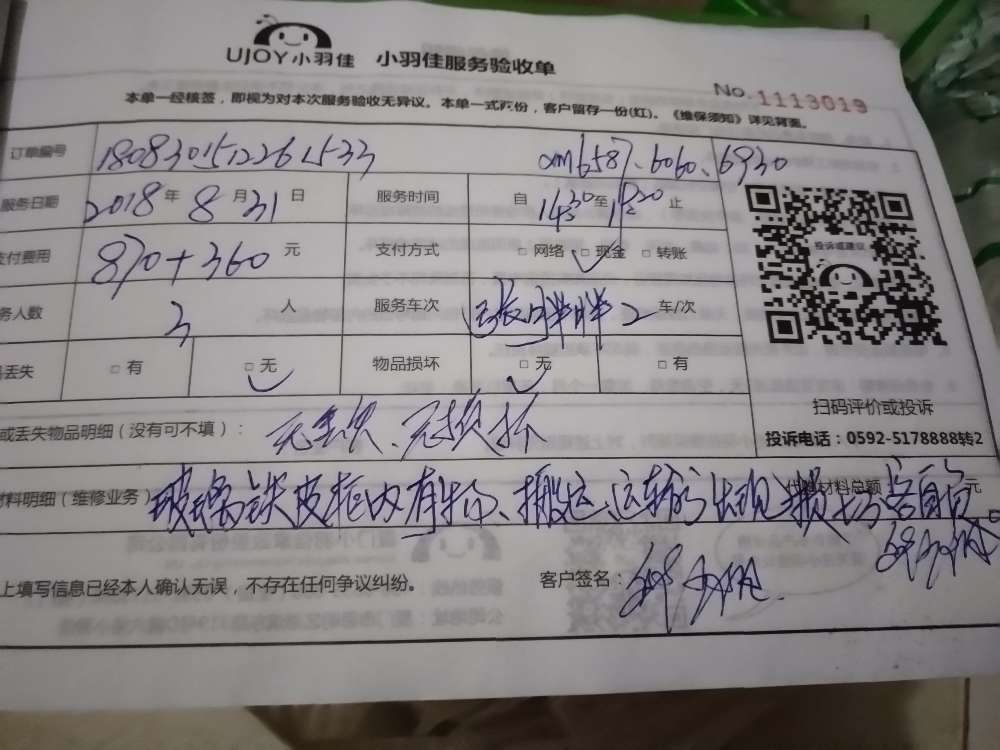 UJOY小羽佳 小羽佳服务验收单
No.1113019
本单一经核签，即视为对本次服务验收无异议。本单一式两份，客户留存一份(红)。《维保须知》详见背面。
订单编号 1808301512261533 xm6587、6060、6930
服务日期 2018年8月31日 服务时间 自1430至 止
支付费用 870+360元 支付方式 □网络 □现金 □转账
务人数 3人 服务车次 2车/次
丢失 □有 □无 物品损坏 □无 □有
投诉或建议
扫码评价或投诉
投诉电话：0592-5178888转2
或丢失物品明细（没有可不填）： 无丢失、无损坏
材料明细（维修业务） 代购材料总额
玻璃铁皮柜内有物品、搬运、运输 出现损坏客自负
上填写信息已经本人确认无误，不存在任何争议纠纷。 客户签名：